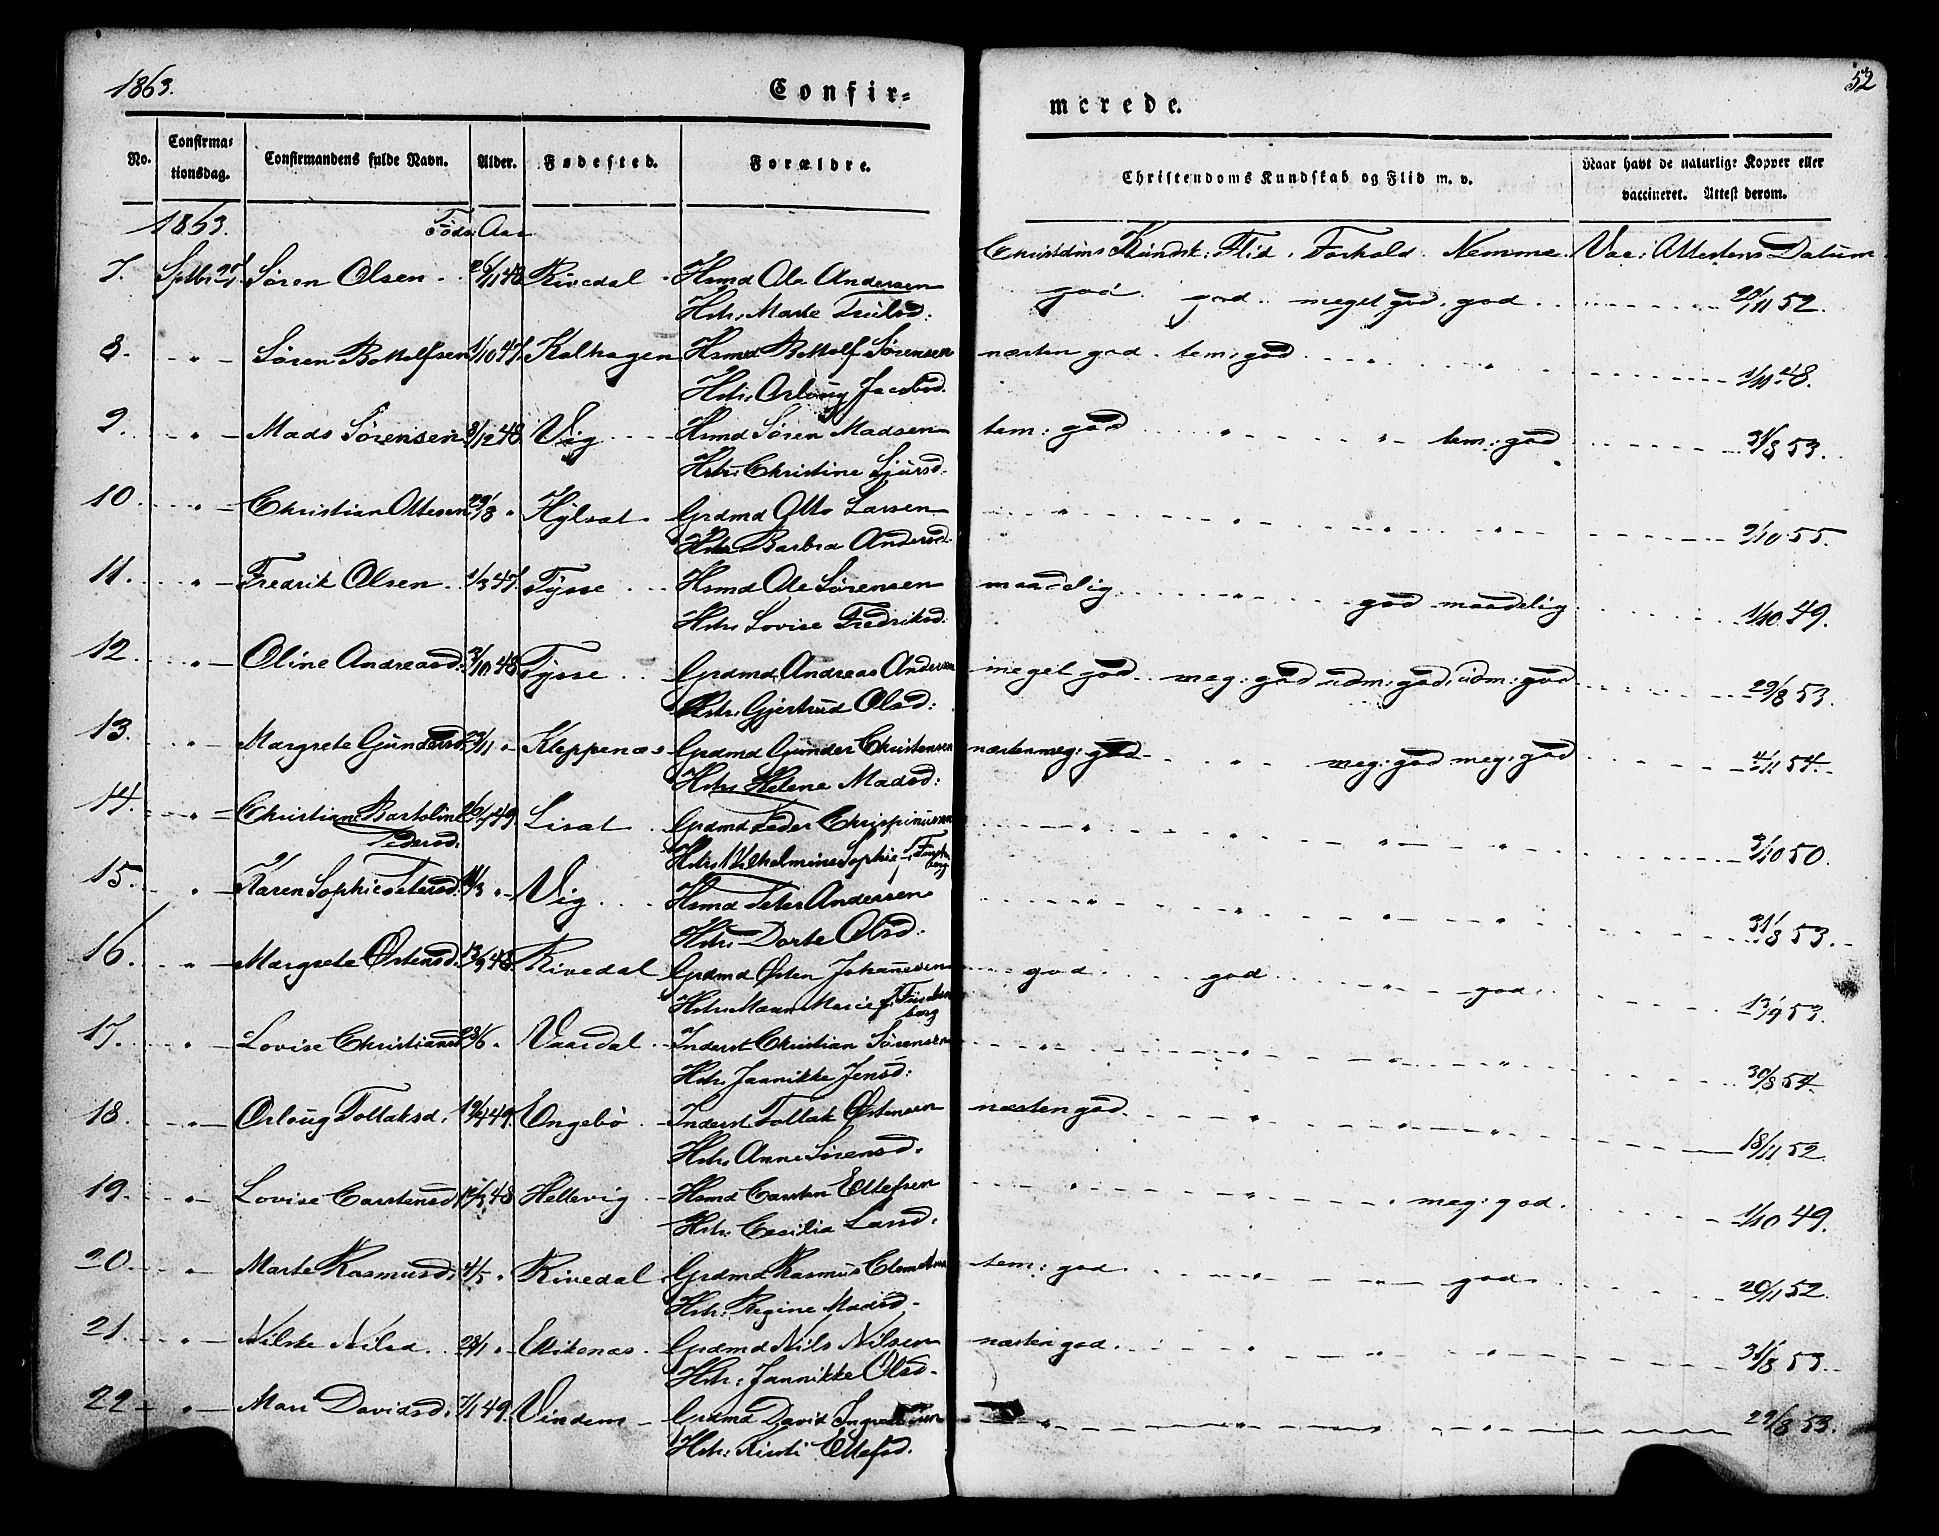 1863.
Confir=
merede.
52
No.
Confirma=
tionsdag.
Confirmandens fulde Navn.
Alder.
Fødested.
Forældre.
Christendoms Kundskab og Flid m. v.
Naar havt de naturlige Kopper eller
vaccineret. Attest derom.
1863. Føds: Aar
Christdms Kundsk: Flid. Forhold. Nemme. Vac: Attestens Datum
7. Septbr 27 Søren Olsen 48 Rivedal Hsmd Ole Andersen god god meget god god 20/11 52.
Hstr: Marte Trulsd:
8. " Søren Bottolfsen 1/10 47. Kalhagen Hsmd Bottolf Sørensen næsten god tem: god " " 1/11 48.
Hstr: Orloug Jacobsd.
9. " Mads Sørensen 3/12 48. Vig Hsmd Søren Madsen tem: god " " tem: god 31/8 53.
Hstr: Christine Sjursd.
10. " Christian Ottesen 29/8 " Hylsat Grdmd Otto Larsen " " " " 2/10 55.
Hstr: Barbra Andersd.
11. " Fredrik Olsen 1/3 47. Tysse Hsmd Ole Sørensen maadelig " god maadelig 1/10 49.
Hstr: Lovise Fredriksd.
12. " Oline Andreasd. 3/10 48 Tysse Grdmd Andreas Andersen meget god meg: god udm: god: udm: god 29/8 53.
Hstr: Gjertrud Olsd:
13. " Margrete Gundersd. 23/11 " Kleppenæs Grdmd Gunder Christensen næsten meg: god " meg: god meg: god 4/11 54.
Hstr: Helene Madsd:
14. " Christiane Bartoline 49. Lisat Grdmd Peder Chrispinussen " " " " 2/10 50.
Pedersd.
Hstr: Wilhelmine Sophie
15. " Karen Sophie Petersd. " Vig Hsmd Peter Andersen " " " " 31/8 53.
Hstr: Dorte Olsd.
16. " Margrete Østensd. 13/9 48. Rivedal Grdmd Østen Johannesen god god " god 13/9 53.
Hstr: Maren Marie f.
17. " Lovise Christiansd 23/6 " Vaardal Inderst Christian Sørensen " " " " 30/8 54
Hstr: Jannikke Jensd:
18. " Orloug Tollaksd. 49. Engebø Inderst Tollak Østensen næsten god " " " 18/11 52.
Hstr: Anne Sørensd.
19. " Lovise Carstensd. 48 Hellevig Hsmd Carsten Ellefsen " " " meg: god 1/10 49.
Hstr: Cecilia Larsd:
20. " Marte Rasmusd: 4/5 " Rivedal Grdmd Rasmus Clemetsen tem: god " " god 20/11 52.
Hstr: Regine Madsd.
21. " Nilske Nilsd. 28/1 " Eikenæs Grdmd Nils Nilsen næsten god " " " 31/8 53.
Hstr: Jannikke Olsd.
22 " Mari Davidsd. 7/1 49. Vindem Grdmd David " " " " 29/8 53.
Hstr: Kirsti Ellefsd.